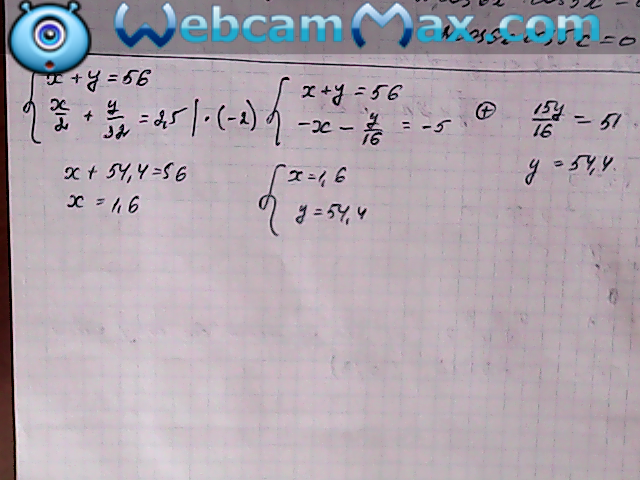 WebcamMax.com
{ x + y = 56
x/2 + y/32 = 2,5 | · (-2)
{ x + y = 56
-x - y/16 = -5
⊕
15y/16 = 51
y = 54,4
x + 54,4 = 56
x = 1,6
{ x = 1,6
y = 54,4